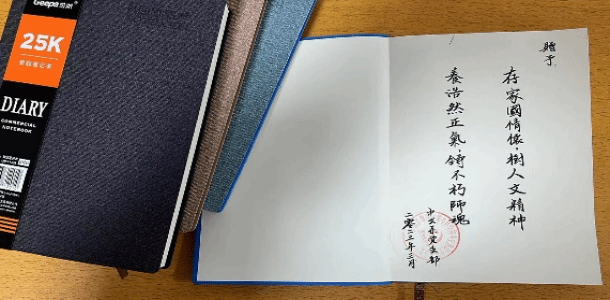 25K
DIARY
COMMERCIAL
NOTEBOOK
贈予
存家國情懷，樹人文精神
養浩然正氣 鑄不朽師魂
中文系党支部
二〇二三年三月